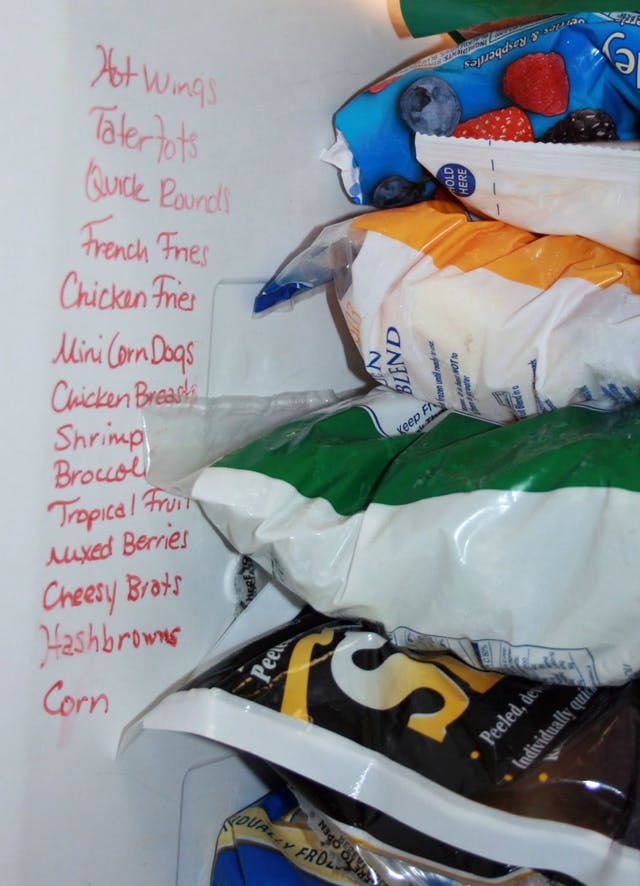 Hot Wings
Tater Tots
Quick Rounds
French Fries
Chicken Fries
Mini Corn Dogs
Chicken Breasts
Shrimp
Broccol
Tropical Fruit
Mixed Berries
Cheesy Brats
Hashbrowns
Corn
erries & Raspberries
HOLD
HERE
BLEND
Keep Fr
Peele
Peeled, de
Individually qui